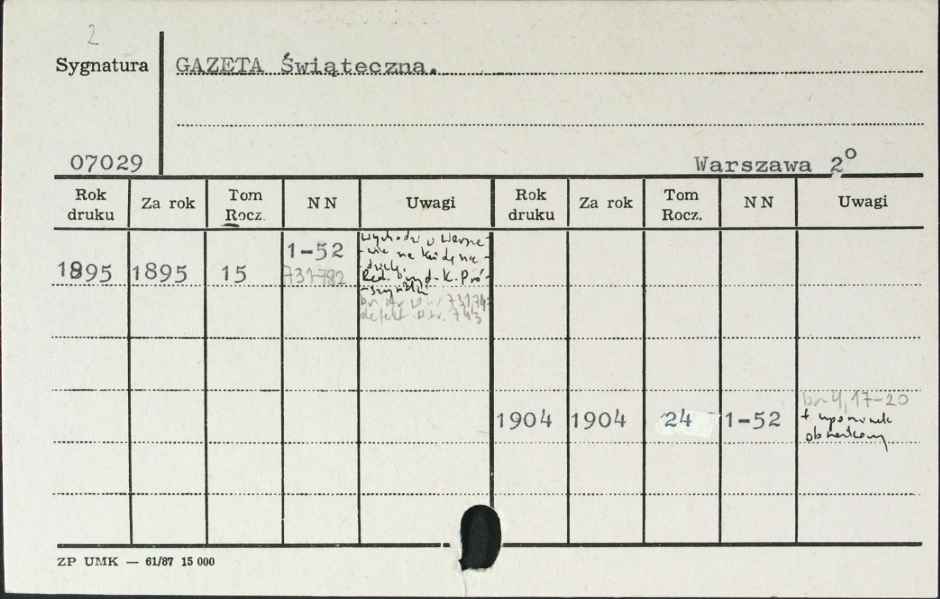 2
Sygnatura GAZETA Świąteczna.
07029 Warszawa 2°
Rok druku Za rok Tom Rocz. NN Uwagi Rok druku Za rok Tom Rocz. NN Uwagi
1895 1895 15 1-52
731-782
Wychodzi w Warsza-
-wie na każdą nie-
-dzielę.
Red. i wyd. K. Pró-
-szyński
defekt nr. 743
1904 1904 24 1-52
br 4, 17-20
+ upominek
obrazkowy
ZP UMK — 61/87 15 000